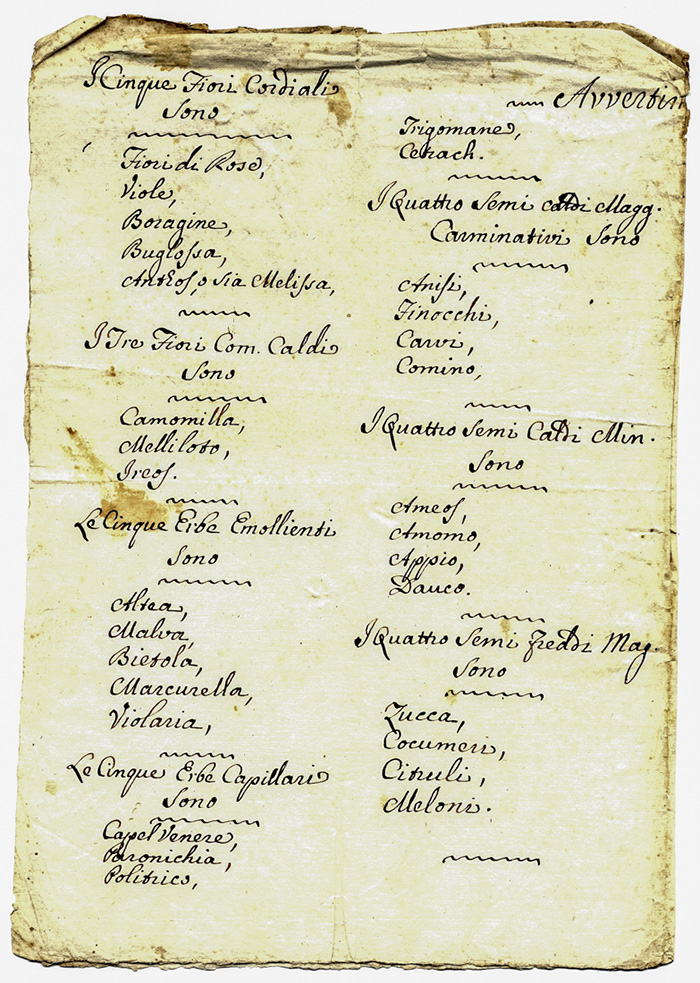 I Cinque Fiori Cordiali
Sono
Fiori di Rose,
Viole,
Boragine,
Buglossa,
Anthos, o sia Melissa,
I Tre Fiori Com. Caldi
Sono
Camomilla,
Melliloto,
Ireos.
Le Cinque Erbe Emollienti
Sono
Altea,
Malva,
Bietola,
Marcurella,
Violaria,
Le Cinque Erbe Capillari
Sono
Capel Venere,
Paronichia,
Politrico,
Avvertim
Trigomane,
Cetrach.
I Quattro Semi Caldi Magg.
Carminativi Sono
Anisi,
Finocchi,
Carvi,
Comino,
I Quattro Semi Caldi Min.
Sono
Ameos,
Amomo,
Appio,
Dauco.
I Quattro Semi freddi Mag.
Sono
Zucca,
Cocumeri,
Citruli,
Meloni.